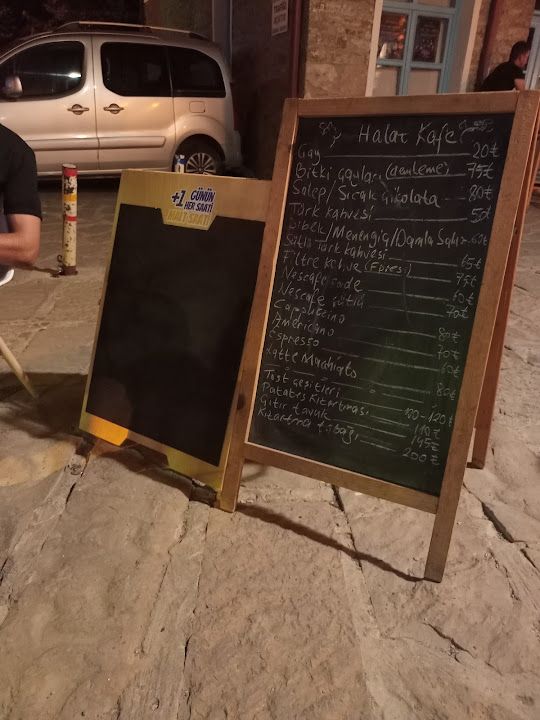 +1 GÜNÜN
HER SAATİ
MALT SAATİ
Halat Kafe
Çay 20₺
Bitki çayları (demleme) 75₺
Salep/Sıcak Çikolata 80₺
Türk kahvesi 50₺
Dibek/Menengiç/Damla Sakız 60₺
Sütlü Türk kahvesi 65₺
Filtre Kahve 75₺
Nescafe sade 60₺
Nescafe sütlü 70₺
Cappuccino 80₺
Americano 70₺
Espresso 60₺
Latte Machiato 80₺
Tost çeşitleri 100-120₺
Patates Kızartması 110₺
Çıtır tavuk 145₺
Kızartma tabağı 200₺